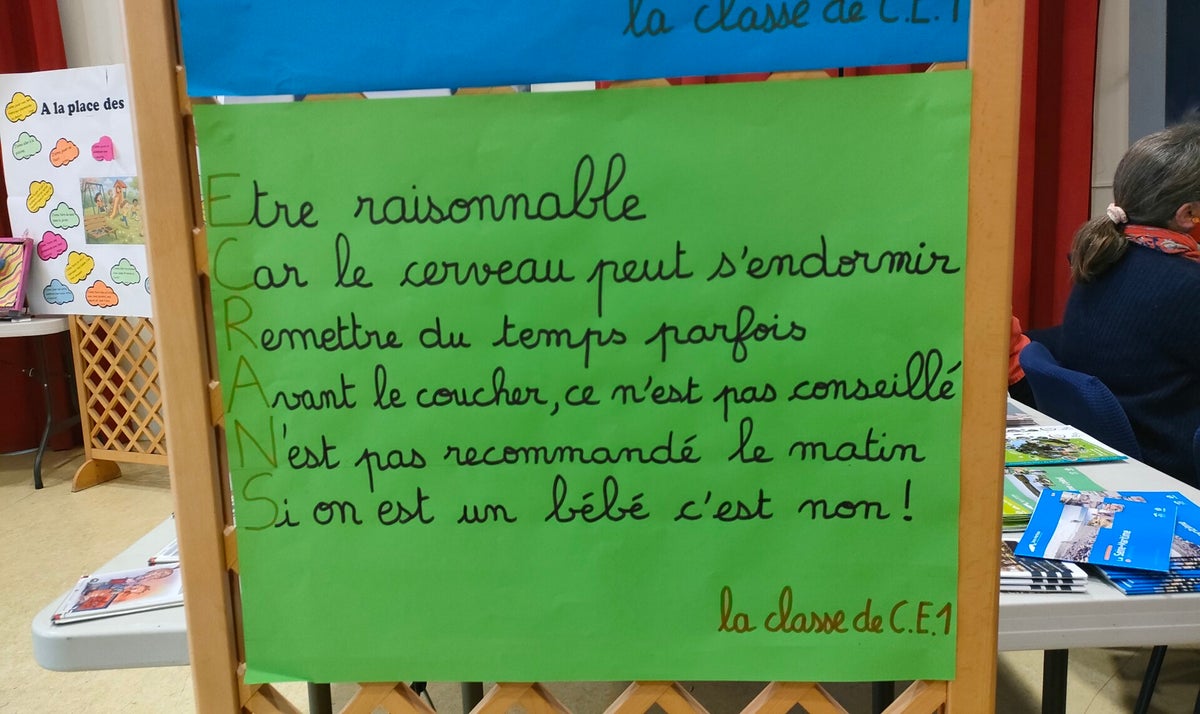 la classe de C.E.1
A la place des
Etre raisonnable
Car le cerveau peut s'endormir
Remettre du temps parfois
Avant le coucher, ce n'est pas conseillé
N'est pas recommandé le matin
Si on est un bébé c'est non !
la classe de C.E.1